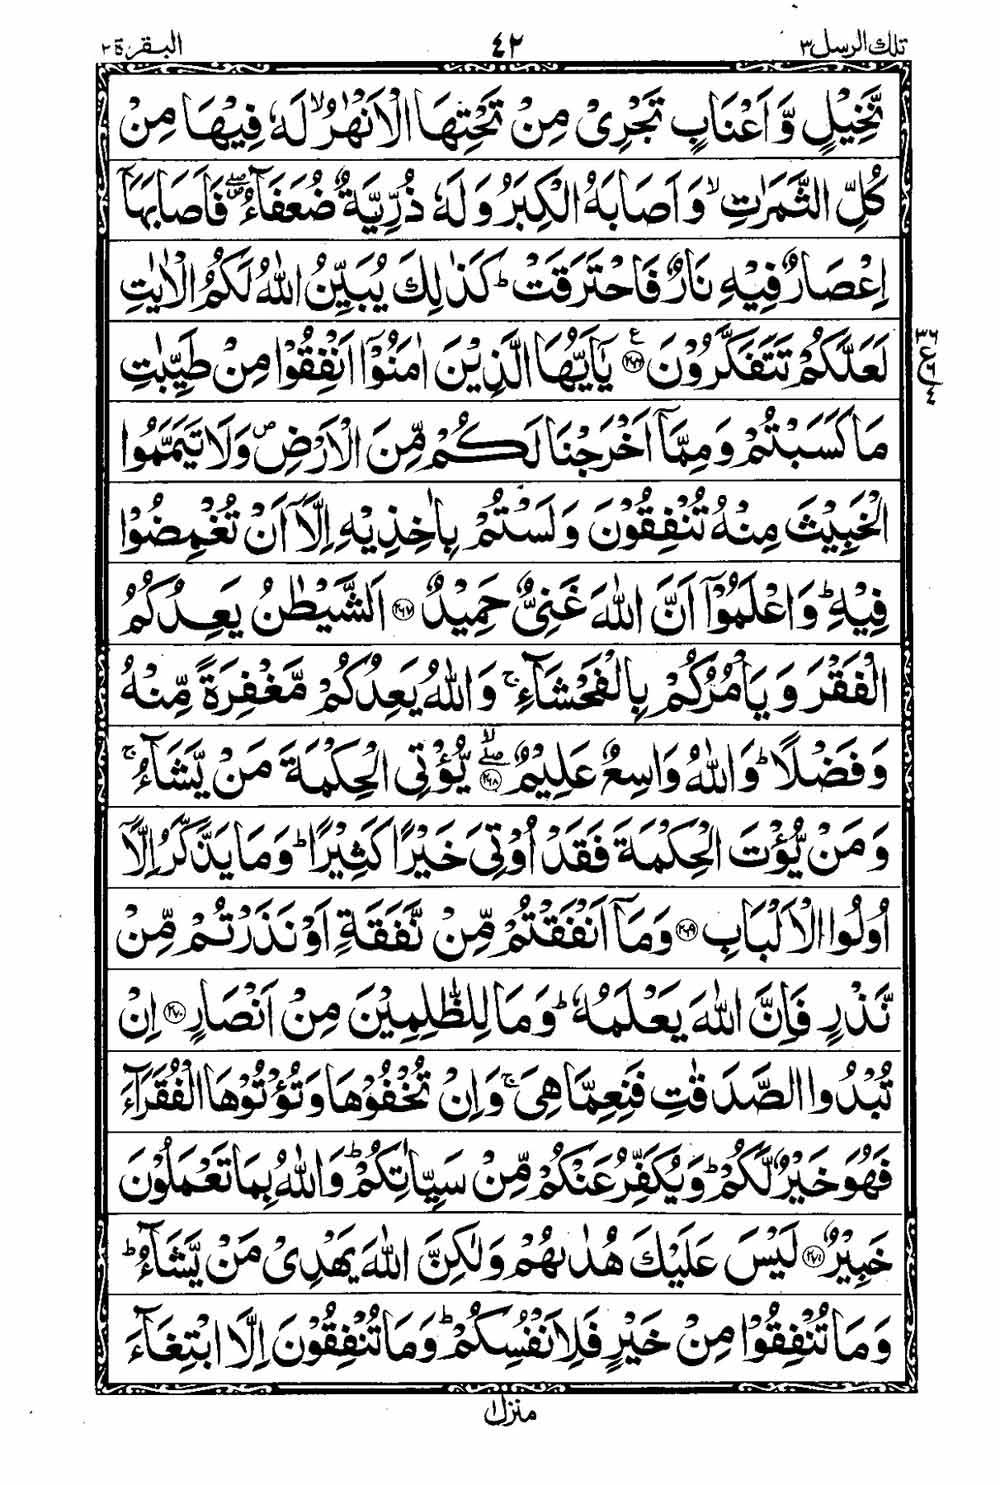 تلك الرسل ٣ ٤٢ البقرة ٢
نَّخِيْلٍ وَّاَعْنَابٍ تَجْرِىْ مِنْ تَحْتِهَا الْاَنْهٰرُ ۙ لَهٗ فِيْهَا مِنْ
كُلِّ الثَّمَرٰتِ ۙ وَاَصَابَهُ الْكِبَرُ وَلَهٗ ذُرِّيَّةٌ ضُعَفَآءُ ۖ فَاَصَابَهَاۤ
اِعْصَارٌ فِيْهِ نَارٌ فَاحْتَرَقَتْ ؕ كَذٰلِكَ يُبَيِّنُ اللّٰهُ لَكُمُ الْاٰيٰتِ
لَعَلَّكُمْ تَتَفَكَّرُوْنَ ﴿۲۶۶﴾ ع يٰۤاَيُّهَا الَّذِيْنَ اٰمَنُوْۤا اَنْفِقُوْا مِنْ طَيِّبٰتِ
٣٦ ع ٦ ٤
مَا كَسَبْتُمْ وَمِمَّاۤ اَخْرَجْنَا لَكُمْ مِّنَ الْاَرْضِ ۪ وَلَا تَيَمَّمُوا
الْخَبِيْثَ مِنْهُ تُنْفِقُوْنَ وَلَسْتُمْ بِاٰخِذِيْهِ اِلَّاۤ اَنْ تُغْمِضُوْا
فِيْهِ ؕ وَاعْلَمُوْۤا اَنَّ اللّٰهَ غَنِىٌّ حَمِيْدٌ ﴿۲۶۷﴾ اَلشَّيْطٰنُ يَعِدُكُمُ
الْفَقْرَ وَيَاْمُرُكُمْ بِالْفَحْشَآءِ ۚ وَاللّٰهُ يَعِدُكُمْ مَّغْفِرَةً مِّنْهُ
وَفَضْلًا ؕ وَاللّٰهُ وَاسِعٌ عَلِيْمٌ ﴿۲۶۸﴾ ۖۙ يُّؤْتِى الْحِكْمَةَ مَنْ يَّشَآءُ ۚ
وَمَنْ يُّؤْتَ الْحِكْمَةَ فَقَدْ اُوْتِىَ خَيْرًا كَثِيْرًا ؕ وَمَا يَذَّكَّرُ اِلَّاۤ
اُولُوا الْاَلْبَابِ ﴿۲۶۹﴾ وَمَاۤ اَنْفَقْتُمْ مِّنْ نَّفَقَةٍ اَوْ نَذَرْتُمْ مِّنْ
نَّذْرٍ فَاِنَّ اللّٰهَ يَعْلَمُهٗ ؕ وَمَا لِلظّٰلِمِيْنَ مِنْ اَنْصَارٍ ﴿۲۷۰﴾ اِنْ
تُبْدُوا الصَّدَقٰتِ فَنِعِمَّا هِىَ ۚ وَاِنْ تُخْفُوْهَا وَتُؤْتُوْهَا الْفُقَرَآءَ
فَهُوَ خَيْرٌ لَّكُمْ ؕ وَيُكَفِّرُ عَنْكُمْ مِّنْ سَيِّاٰتِكُمْ ؕ وَاللّٰهُ بِمَا تَعْمَلُوْنَ
خَبِيْرٌ ﴿۲۷۱﴾ لَيْسَ عَلَيْكَ هُدٰىهُمْ وَلٰكِنَّ اللّٰهَ يَهْدِىْ مَنْ يَّشَآءُ ؕ
وَمَا تُنْفِقُوْا مِنْ خَيْرٍ فَلِاَنْفُسِكُمْ ؕ وَمَا تُنْفِقُوْنَ اِلَّا ابْتِغَآءَ
منزل ١